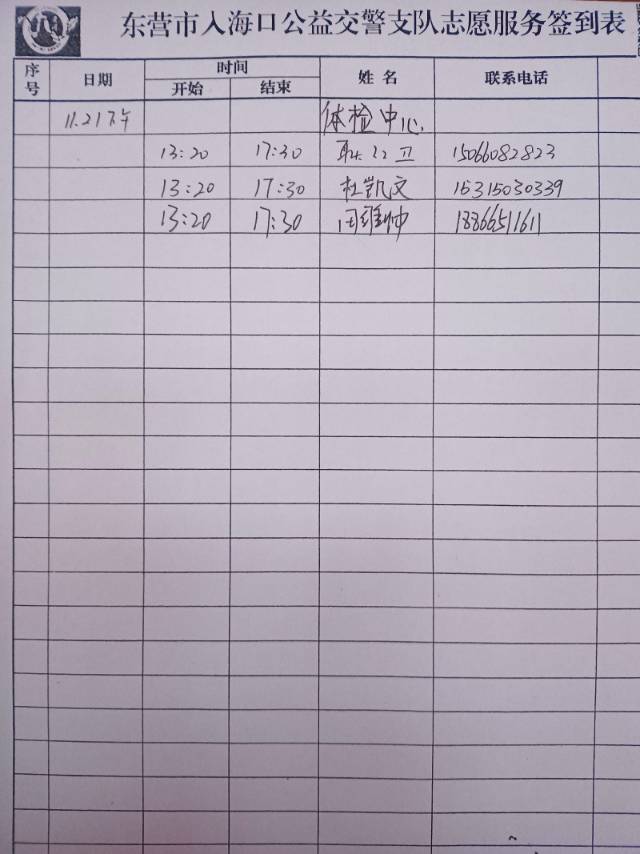 东营市入海口公益交警支队志愿服务签到表
序号 日期 时间 姓名 联系电话
开始 结束
11.21下午 体检中心
13:20 17:30 15066082823
13:20 17:30 杜凯文 15315030339
13:20 17:30 周维帅 18866511611